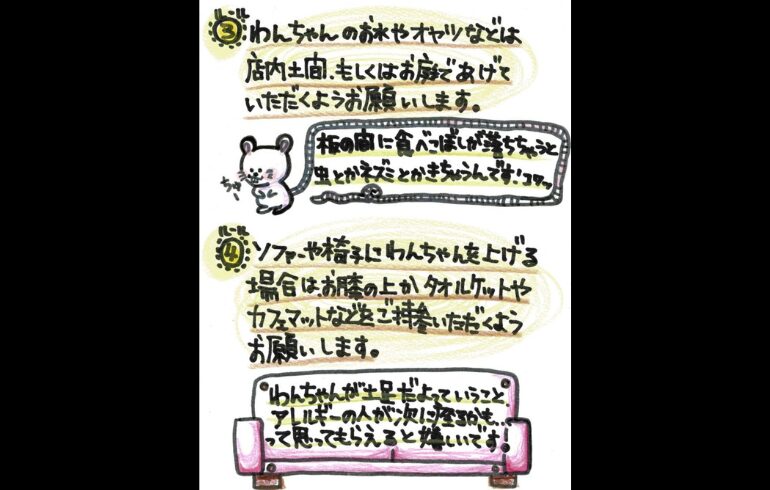 ルール
③ わんちゃんのお水やオヤツなどは
店内土間、もしくはお庭であげて
いただくようお願いします。
板の間に食べこぼしが落ちちゃうと
虫とかネズミとかきちゃうんです!コワッ
ちゅー
ルール
④ ソファーや椅子にわんちゃんを上げる
場合は、お膝の上か タオルケットや
カフェマットなどをご持参いただくよう
お願いします。
わんちゃんが土足だよっていうこと、
アレルギーの人が次に座るかも...
って思ってもらえると嬉しいです!